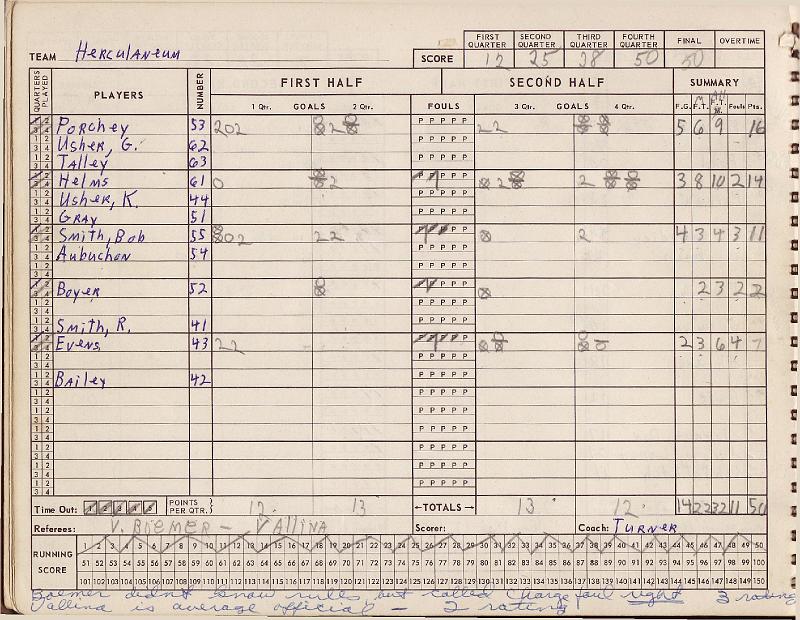 FIRST QUARTER SECOND QUARTER THIRD QUARTER FOURTH QUARTER FINAL OVERTIME
TEAM Herculaneum SCORE 12 25 28 50 50
QUARTERS PLAYED PLAYERS NUMBER FIRST HALF SECOND HALF SUMMARY
1 Qtr. GOALS 2 Qtr. FOULS 3 Qtr. GOALS 4 Qtr. F.G. F.T. F.T. Fouls Pts.
Porchey 53 202 P P P P P 22 5 6 9 16
Usher, G. 62 P P P P P
Talley 63 P P P P P
Helms 61 0 2 2 3 8 10 2 14
Usher, K. 44 P P P P P
Gray 51 P P P P P
Smith, Bob 55 02 22 2 4 3 4 3 11
Aubuchon 54 P P P P P
Boyer 52 2 3 2 2
Smith, R. 41 P P P P P
Evens 43 22 2 3 6 4 7
Bailey 42 P P P P P
Time Out: 1 2 3 4 5 POINTS PER QTR. 12 13 ←TOTALS→ 13 12 14 22 32 11 50
Referees: V. Bremer - Vallina Scorer: Coach: Turner
RUNNING SCORE
1 2 3 4 5 6 7 8 9 10 11 12 13 14 15 16 17 18 19 20 21 22 23 24 25 26 27 28 29 30 31 32 33 34 35 36 37 38 39 40 41 42 43 44 45 46 47 48 49 50
51 52 53 54 55 56 57 58 59 60 61 62 63 64 65 66 67 68 69 70 71 72 73 74 75 76 77 78 79 80 81 82 83 84 85 86 87 88 89 90 91 92 93 94 95 96 97 98 99 100
101 102 103 104 105 106 107 108 109 110 111 112 113 114 115 116 117 118 119 120 121 122 123 124 125 126 127 128 129 130 131 132 133 134 135 136 137 138 139 140 141 142 143 144 145 146 147 148 149 150
Bremer didn't know rules but called charge foul right 3 rating
Vallina is average official - 2 rating